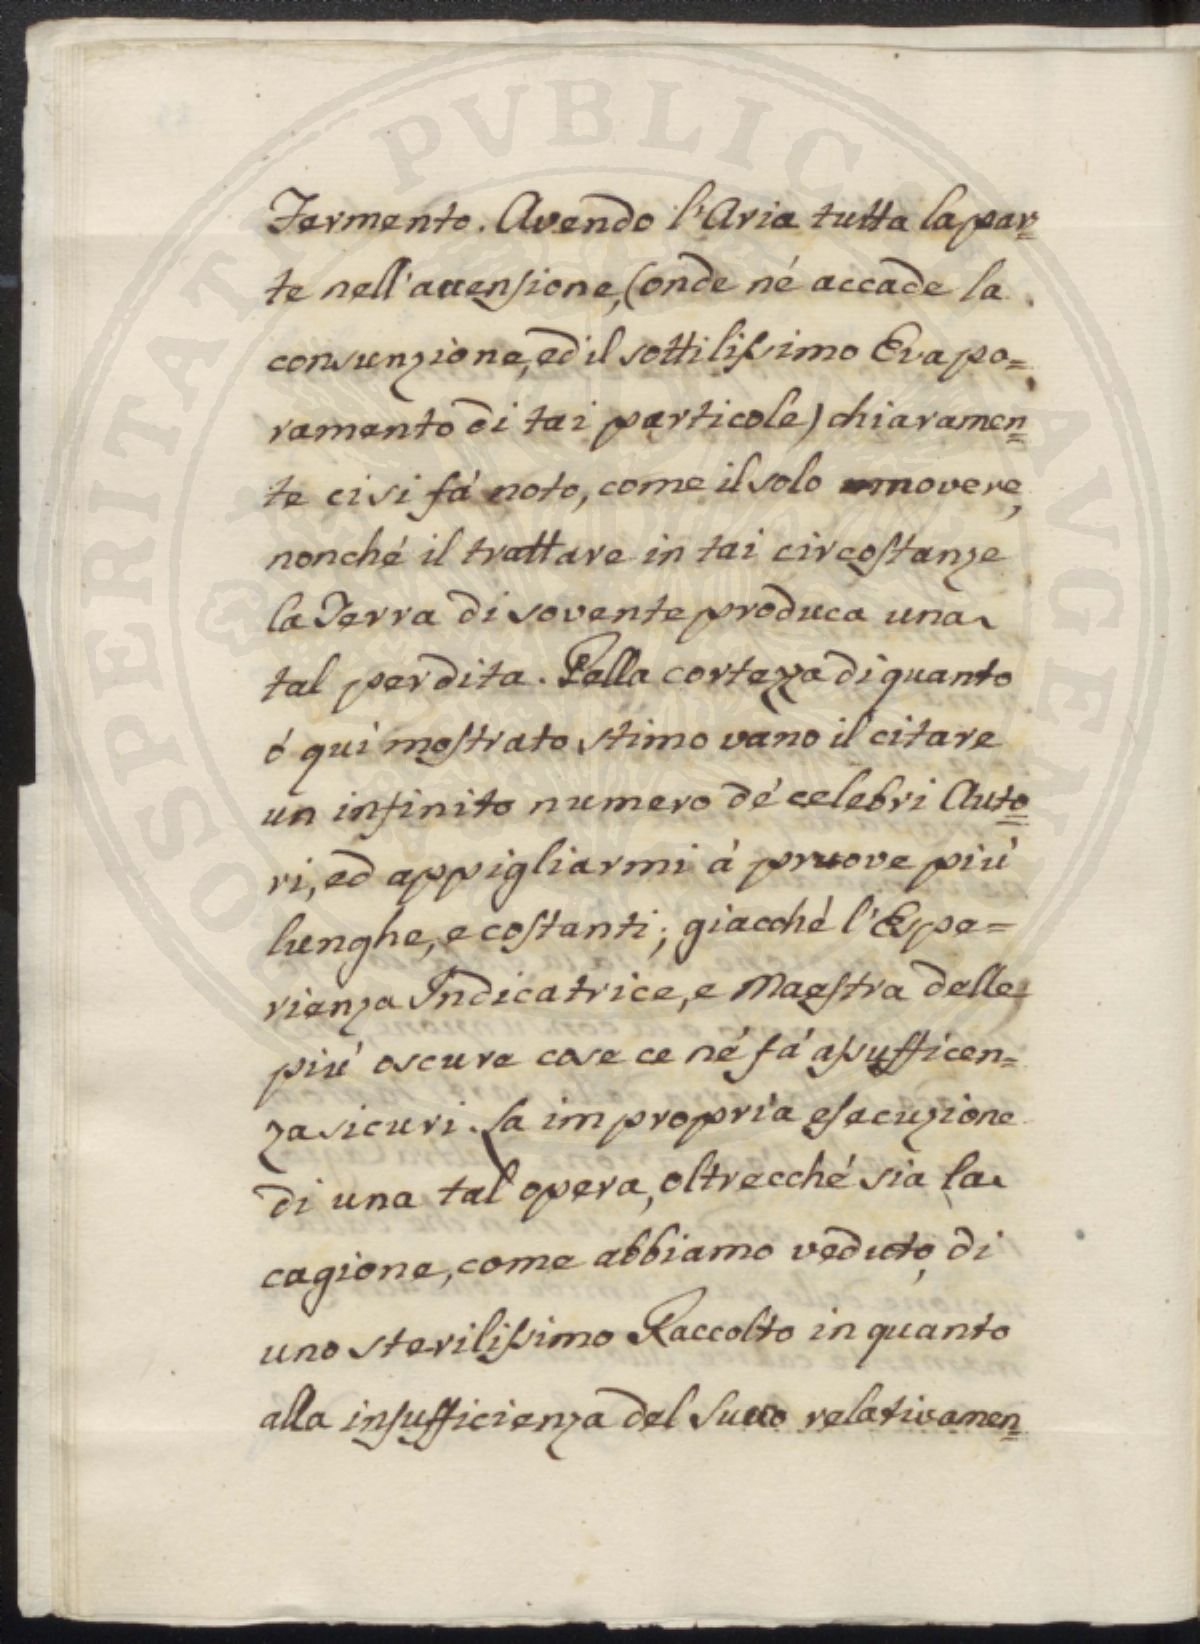 PROSPERITATI PVBLICAE AVGENDAE
Fermento. Avendo l'Aria tutta la par=
te nell'accensione, (onde né accade la
consunzione, ed il sottilissimo Evapo=
ramento di tai particole) chiaramen=
te ci si fá noto, come il solo smovere,
nonché il trattare in tai circostanze
la Terra di sovente produca una
tal perdita. Pella cortezza di quanto
ó qui mostrato stimo vano il citare
un infinito numero dé celebri Auto=
ri, ed appigliarmi á pruove piú
lunghe, e costanti; giacché l'Espe=
rienza Indicatrice, e Maestra delle
piú oscure cose ce né fá a sufficen=
za sicuri. La impropria esecuzione
di una tal opera, oltrecché sia la
cagione, come abbiamo veduto, di
uno sterilissimo Raccolto in quanto
alla insufficienza del Succo relativamen=